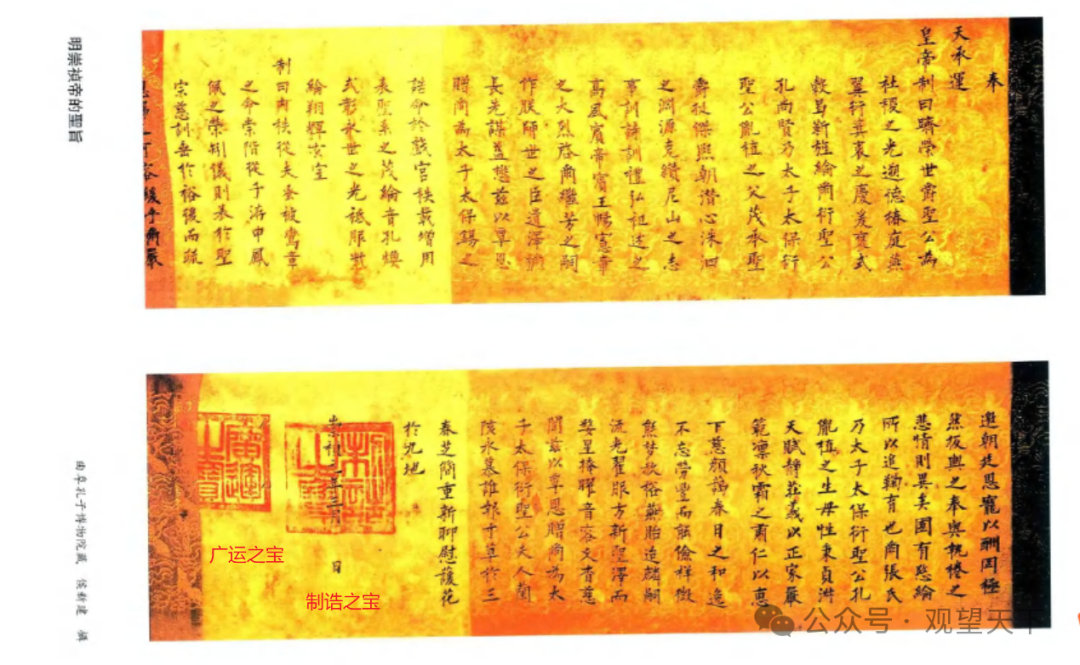 明崇禎帝的聖旨
奉
天承運
皇帝制曰躋榮世爵聖公為
社稷之光遡德椿庭燕
翼衍箕裘之慶爰襃式
穀新旌綸爾衍聖公
孔尚賢乃太子太保衍
聖公胤植之父茂承聖
傑熙朝潛心洙泗
之淵源克纘尼山之志
事訓詩訓禮弘祖述之
高風賓帝賓王暢憲章
之大烈啓爾繼芳之嗣
作朕師世之臣道澤彌
長先謀益懋茲以覃恩
贈爾為太子太保錫之
誥命於戲宮秩載增用
表聖系之茂綸音孔煥
式彰永世之光祗服
綸翔輝玄室
制曰内秩從夫荃被鸞章
之命崇階從子游申鳳
佩之榮矧儀則表於聖
宗慈訓垂於裕後而疏
曲阜孔子博物院藏 侯新建 攝
遐朝廷恩寵以酬罔極
然板輿之奉與執棬之
悲情則異矣國有悲綸
所以追鞠育也爾張氏
乃太子太保衍聖公孔
胤植之生母性秉貞淑
天賦靜莊義以正家嚴
範凛秋霜之肅仁以惠
下慈顏藹春日之和逸
不忘勞豐而能儉祥徵
熊夢啟裕燕胎造麟嗣
流光翟服方新聖澤而
婺星掩曜音容久杳慈
閨茲以覃恩贈爾為太
子太保衍聖公夫人蘭
陔永慕誰報千草於三
春芝簡重新聊慰護花
於九地
崇禎二年二月 日
制誥之寶
廣運之寶
广运之宝
制诰之宝
公众号·观望天下